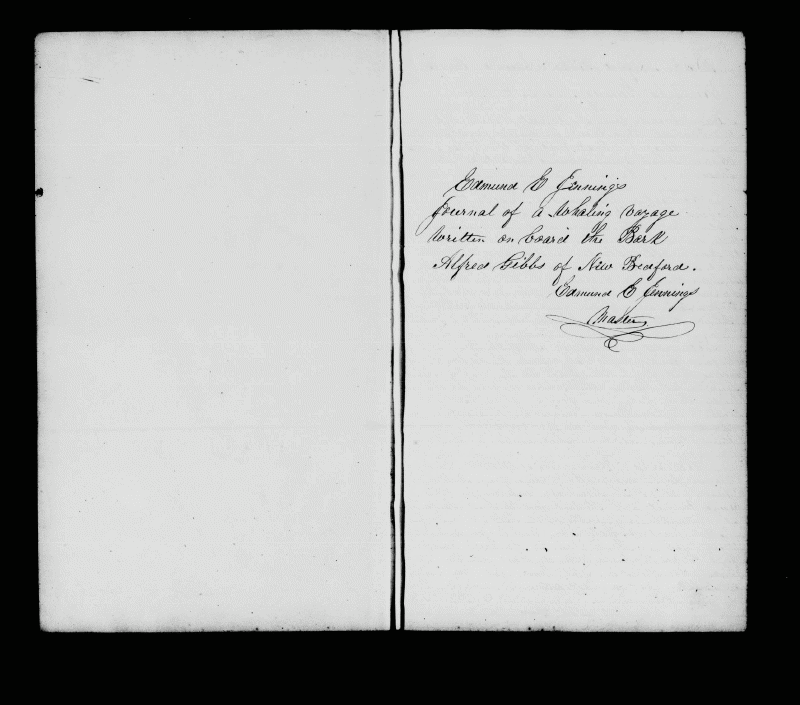 Edmund E Jennings
Journal of a Whaling voyage
Written on board the Bark
Alfred Gibbs of New Bedford.
Edmund E Jennings
Master